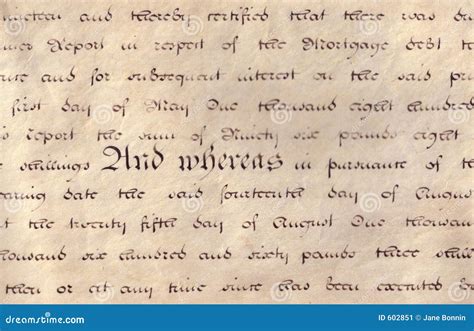 nineteen and thereby certified that there was du
Report in respect of the Mortgage debt
and for subsequent interest on the said pr
first day of May One thousand eight hundred
report the sum of Ninety six pounds eight
shillings And whereas in pursuance of
bearing date the said fourteenth day of Augus
the twenty fifth day of August One thousan
thousand six hundred and sixty pounds three shill
then or at any time since has been executed
dreamstime.com
ID 602851 © Jane Bonnin